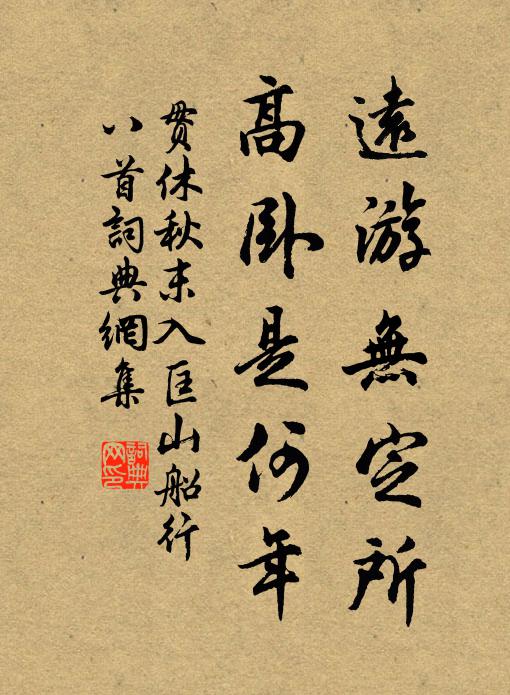 遠游無定所
高卧是何年
貫休秋末入匡山船行
八首詞典網集
詞典
网印